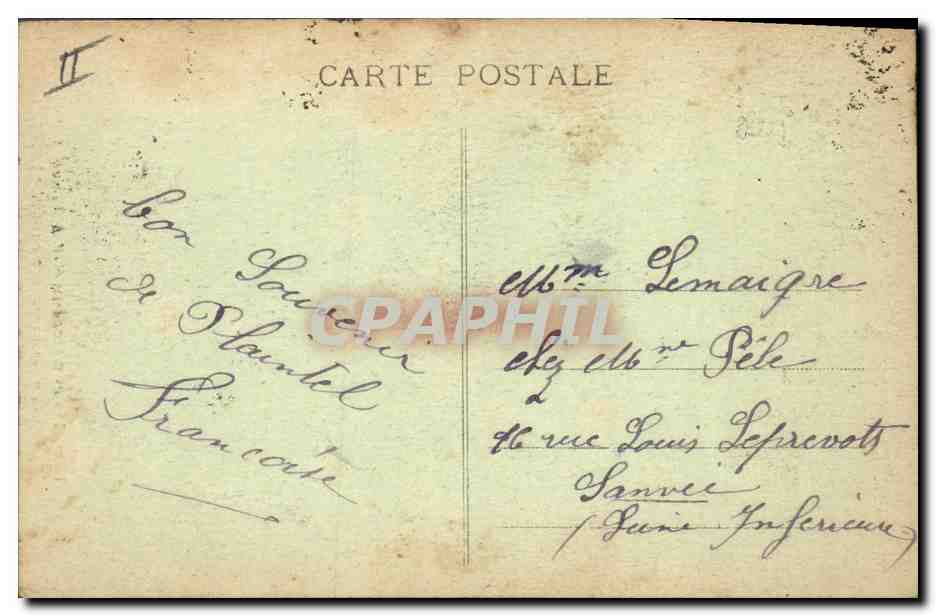 II
CARTE POSTALE
bon Souvenir
de Plaintel
Françoise
Mme Lemaigre
chez Mme Pêle
16 rue Louis Leprevots
Sanvic
(Seine Inferieure)
CPAPHIL